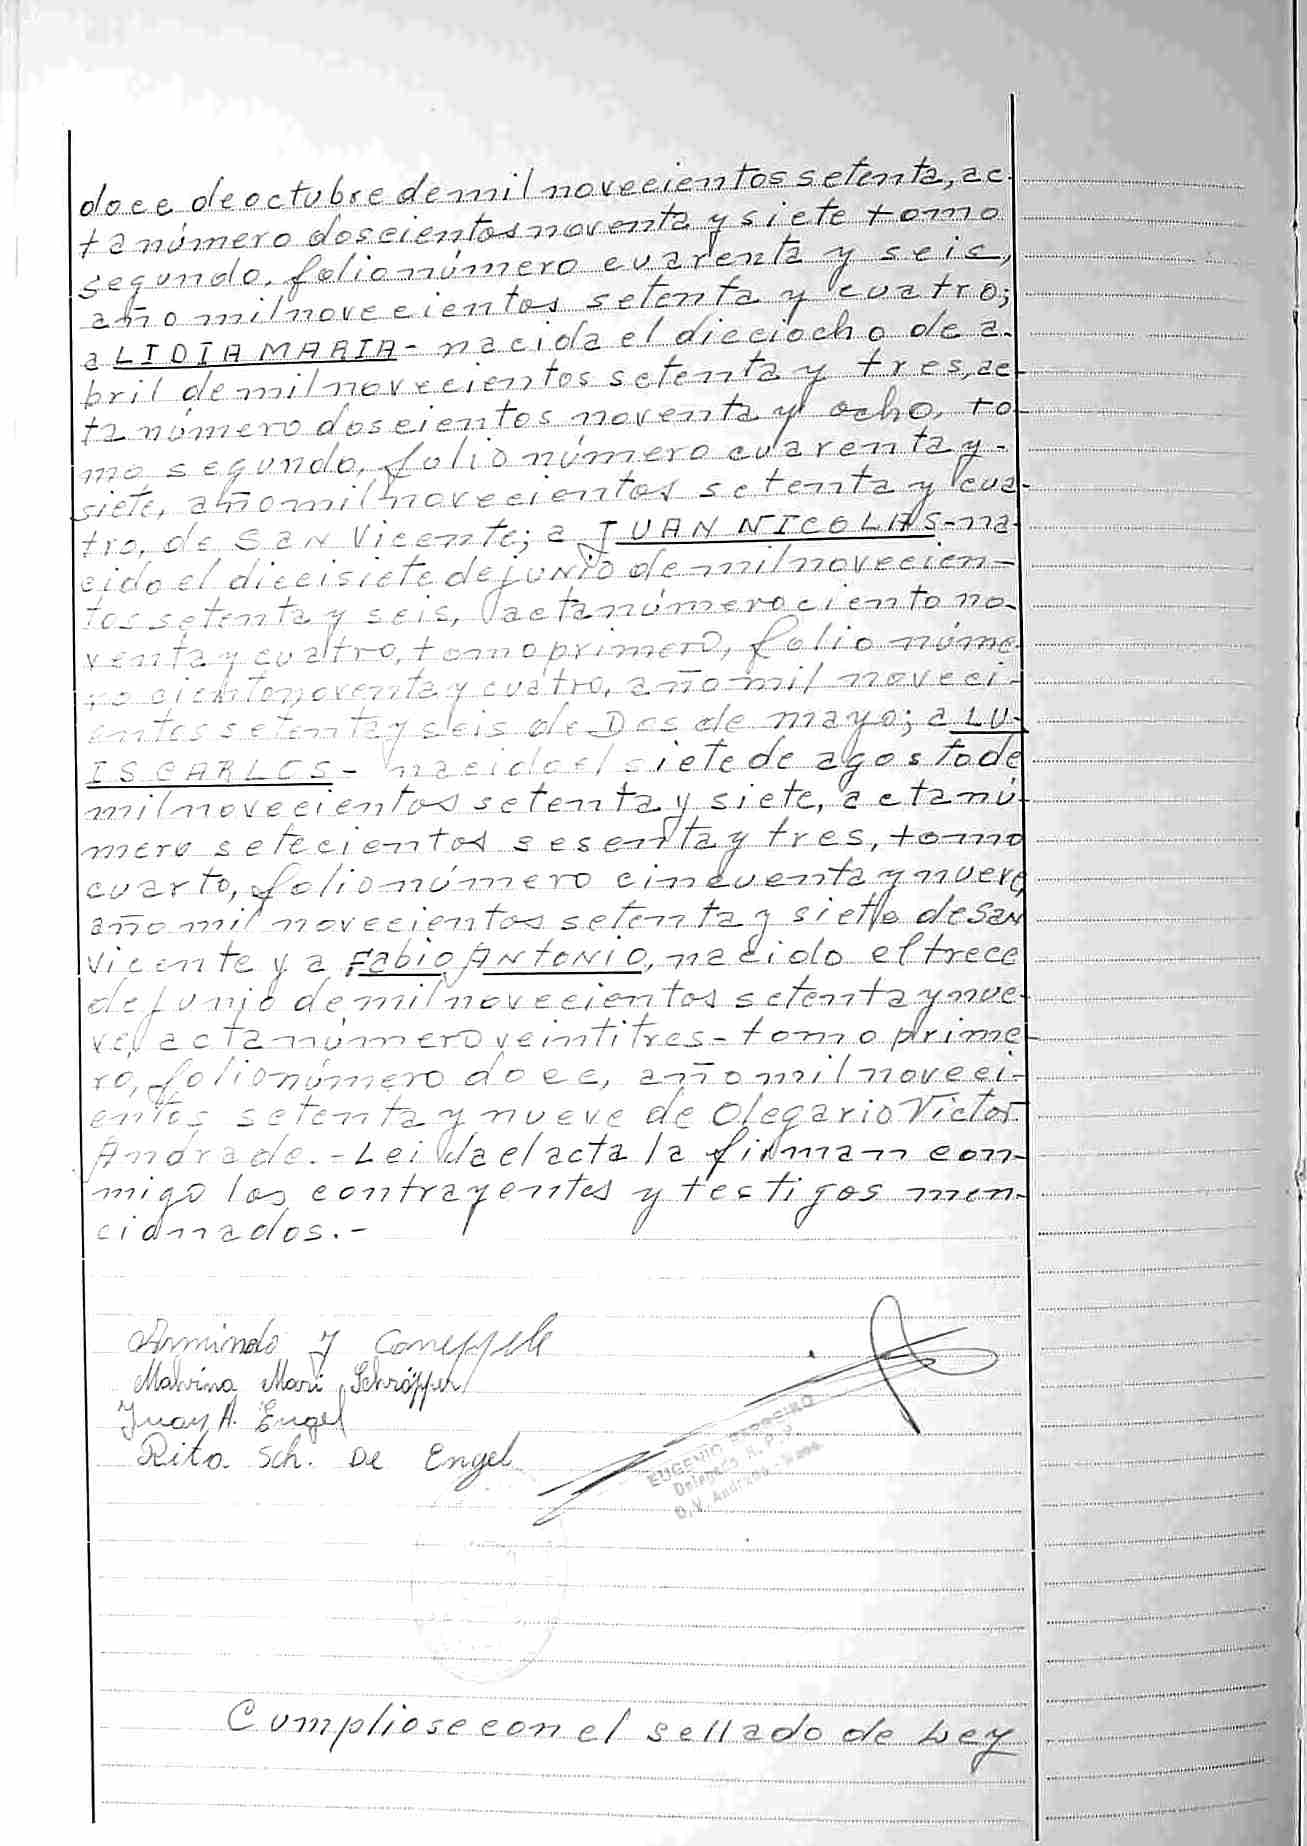 doce de octubre de mil novecientos setenta, ac-
ta número doscientos noventa y siete tomo
segundo, folio número cuarenta y seis,
año mil novecientos setenta y cuatro;
a LIDIA MARIA- nacida el dieciocho de a-
bril de mil novecientos setenta y tres, ac-
ta número doscientos noventa y ocho, to-
mo segundo, folio número cuarenta y-
siete, año mil novecientos setenta y cua-
tro, de San Vicente; a JUAN NICOLAS-na-
cido el diecisiete de junio de mil novecien-
tos setenta y seis, acta número ciento no-
venta y cuatro, tomo primero, folio núme-
ro ciento noventa y cuatro, año mil noveci-
entos setenta y seis de Dos de mayo; a LU-
IS CARLOS- nacido el siete de agosto de
mil novecientos setenta y siete, acta nú-
mero setecientos sesenta y tres, tomo
cuarto, folio número cincuenta y nueve,
año mil novecientos setenta y siete de San
Vicente y a Fabio Antonio, nacido el trece
de junio de mil novecientos setenta y nue-
ve, acta número veintitres- tomo prime-
ro, folio número doce, año mil noveci-
entos setenta y nueve de Olegario Victor
Andrade.- Leida el acta la firman con-
migo los contrayentes y testigos men-
cionados.-
Armindo J Coneppele
Malvina Mari Schröpfer
Juan A. Engel
Rita Sch. De Engel
EUGENIO FERREIRO
Delegado R. P. P.
O. V. Andrade - Mnes.
Cumpliose con el sellado de Ley